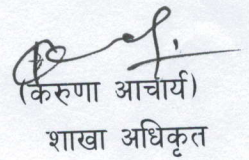 (करुणा आचार्य)
शाखा अधिकृत